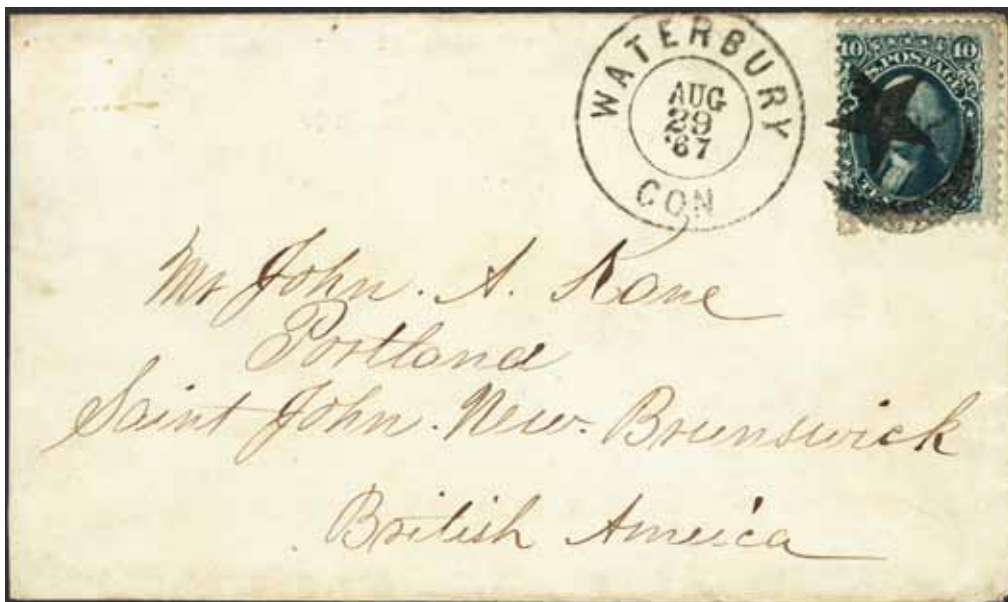 WATERBURY
AUG
29
'67
CON
10 10
U.S. POSTAGE
Mr John. A. Kane
Portland
Saint John. New. Brunswick
British America